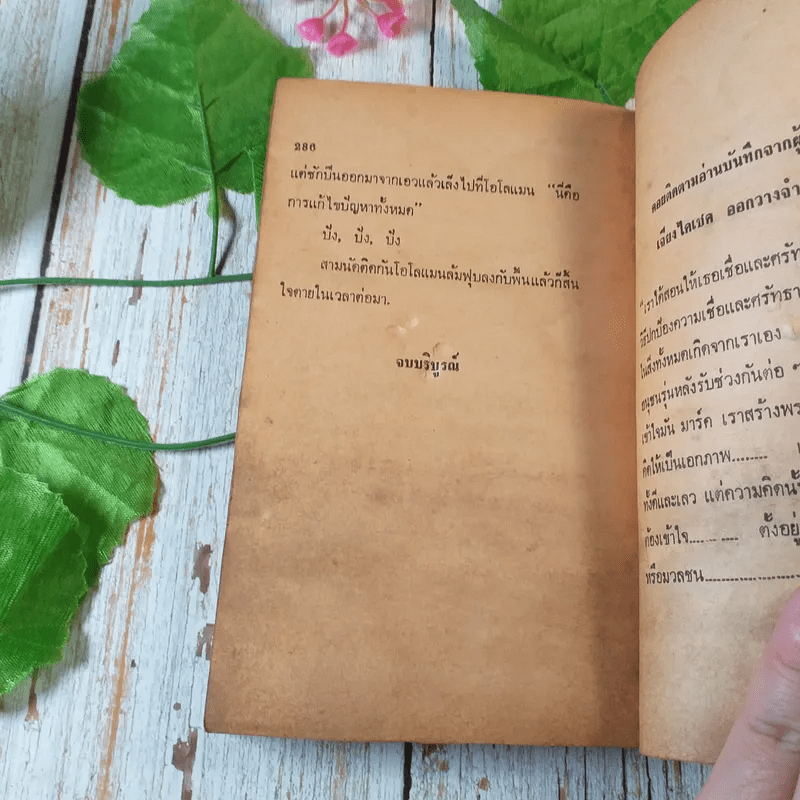 286
แต่ชักปืนออกมาจากเอวแล้วเล็งไปที่โอโลแมน “นี่คือ
การแก้ไขปัญหาทั้งหมด”
ปัง, ปัง, ปัง
สามนัดติดกันโอโลแมนล้มฟุบลงกับพื้นแล้วก็สิ้น
ใจตายในเวลาต่อมา.
จบบริบูรณ์
คอยติดตามอ่านบันทึกจากผู้
เจียงไคเชค ออกวางจำ
“เราได้สอนให้เธอเชื่อและศรัท
วิธีปกป้องความเชื่อและศรัทธา
ในสิ่งทั้งหมดเกิดจากเราเอง
อนุชนรุ่นหลังรับช่วงกันต่อ ๆ
เข้าใจมัน มาร์ค เราสร้างพร
คิดให้เป็นเอกภาพ........
ทั้งดีและเลว แต่ความคิดนั้
ต้องเข้าใจ........ ตั้งอยู่
หรือมวลชน....................